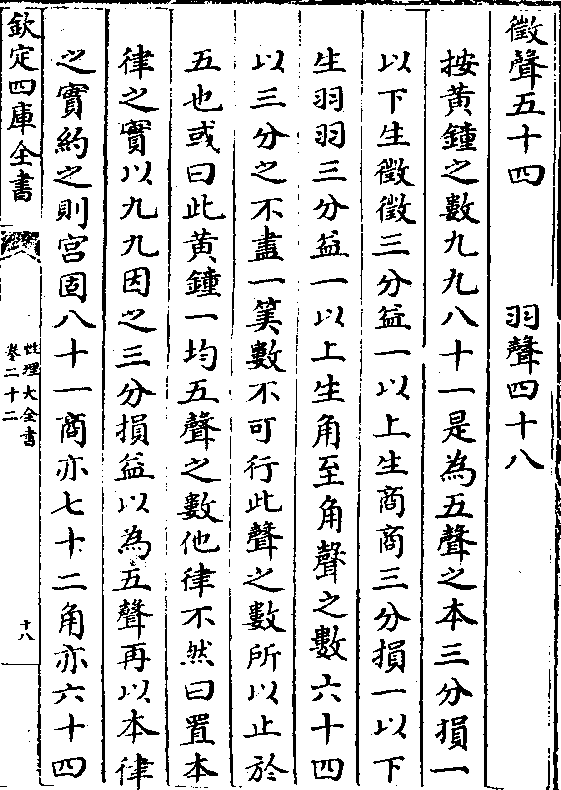 徵聲五十四　羽聲四十八
按黃鍾之數九九八十一是為五聲之本三分損一
以下生徵徵三分益一以上生商商三分損一以下
生羽羽三分益一以上生角至角聲之數六十四
以三分之不盡一筭數不可行此聲之數所以止於
五也或曰此黃鍾一均五聲之數他律不然曰置本
律之實以九九因之三分損益以為五聲再以本律
之實約之則宫固八十一商亦七十二角亦六十四
欽定四庫全書
性理大全書
卷二十二
十八